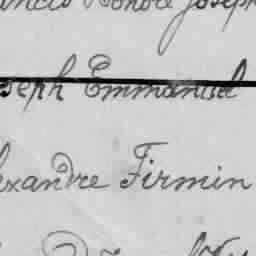 ancis Honoré Joseph
oseph Emmanuel
exandre Firmin